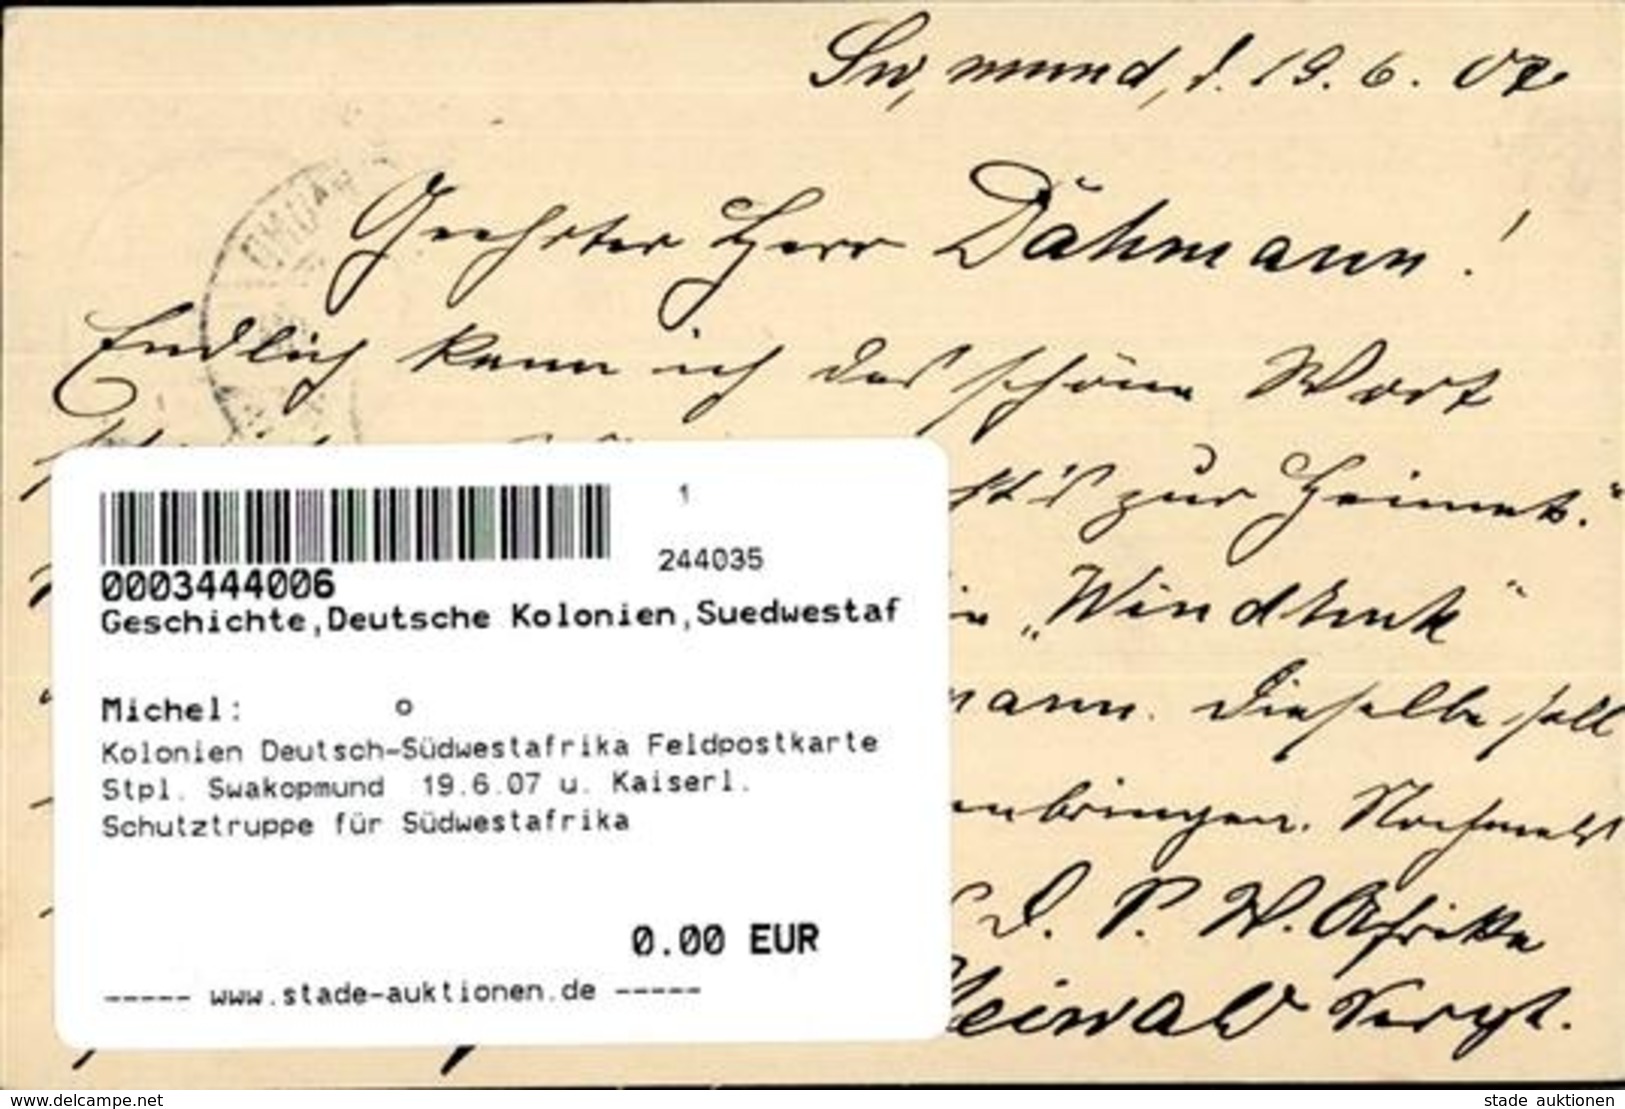 Sw, mund, d. 19. 6. 07.
Geehrter Herr Dähmann!
Endlich kann ich das schöne Wort
st's zur Heimat."
"Windhuk"
mann. Dieselbe soll
bringen. Nochmals
D. S. W. Afrika
Sergt.
1
244035
0003444006
Geschichte,Deutsche Kolonien,Suedwestaf
Michel: o
Kolonien Deutsch-Südwestafrika Feldpostkarte
Stpl. Swakopmund 19.6.07 u. Kaiserl.
Schutztruppe für Südwestafrika
0.00 EUR
----- www.stade-auktionen.de -----
www.delcampe.net
stade auktionen